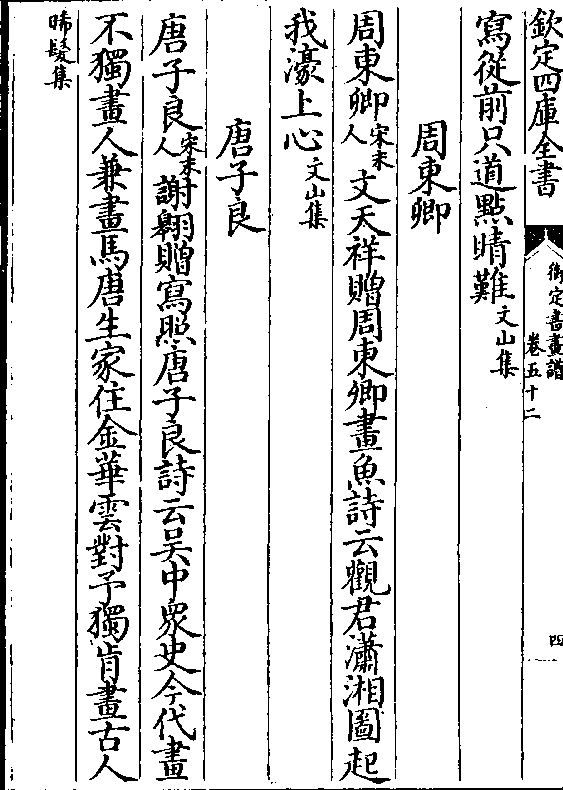 欽定四庫全書
御定書畫譜
卷五十二
四
寫從前只道點睛難文山集
周東卿
周東卿宋末人文天祥贈周東卿畫魚詩云觀君瀟湘圖起
我濠上心文山集
唐子良
唐子良宋末人謝翱贈寫照唐子良詩云吴中衆史今代畫
不獨畫人兼畫馬唐生家住金華雲對予獨肯畫古人
晞髮集